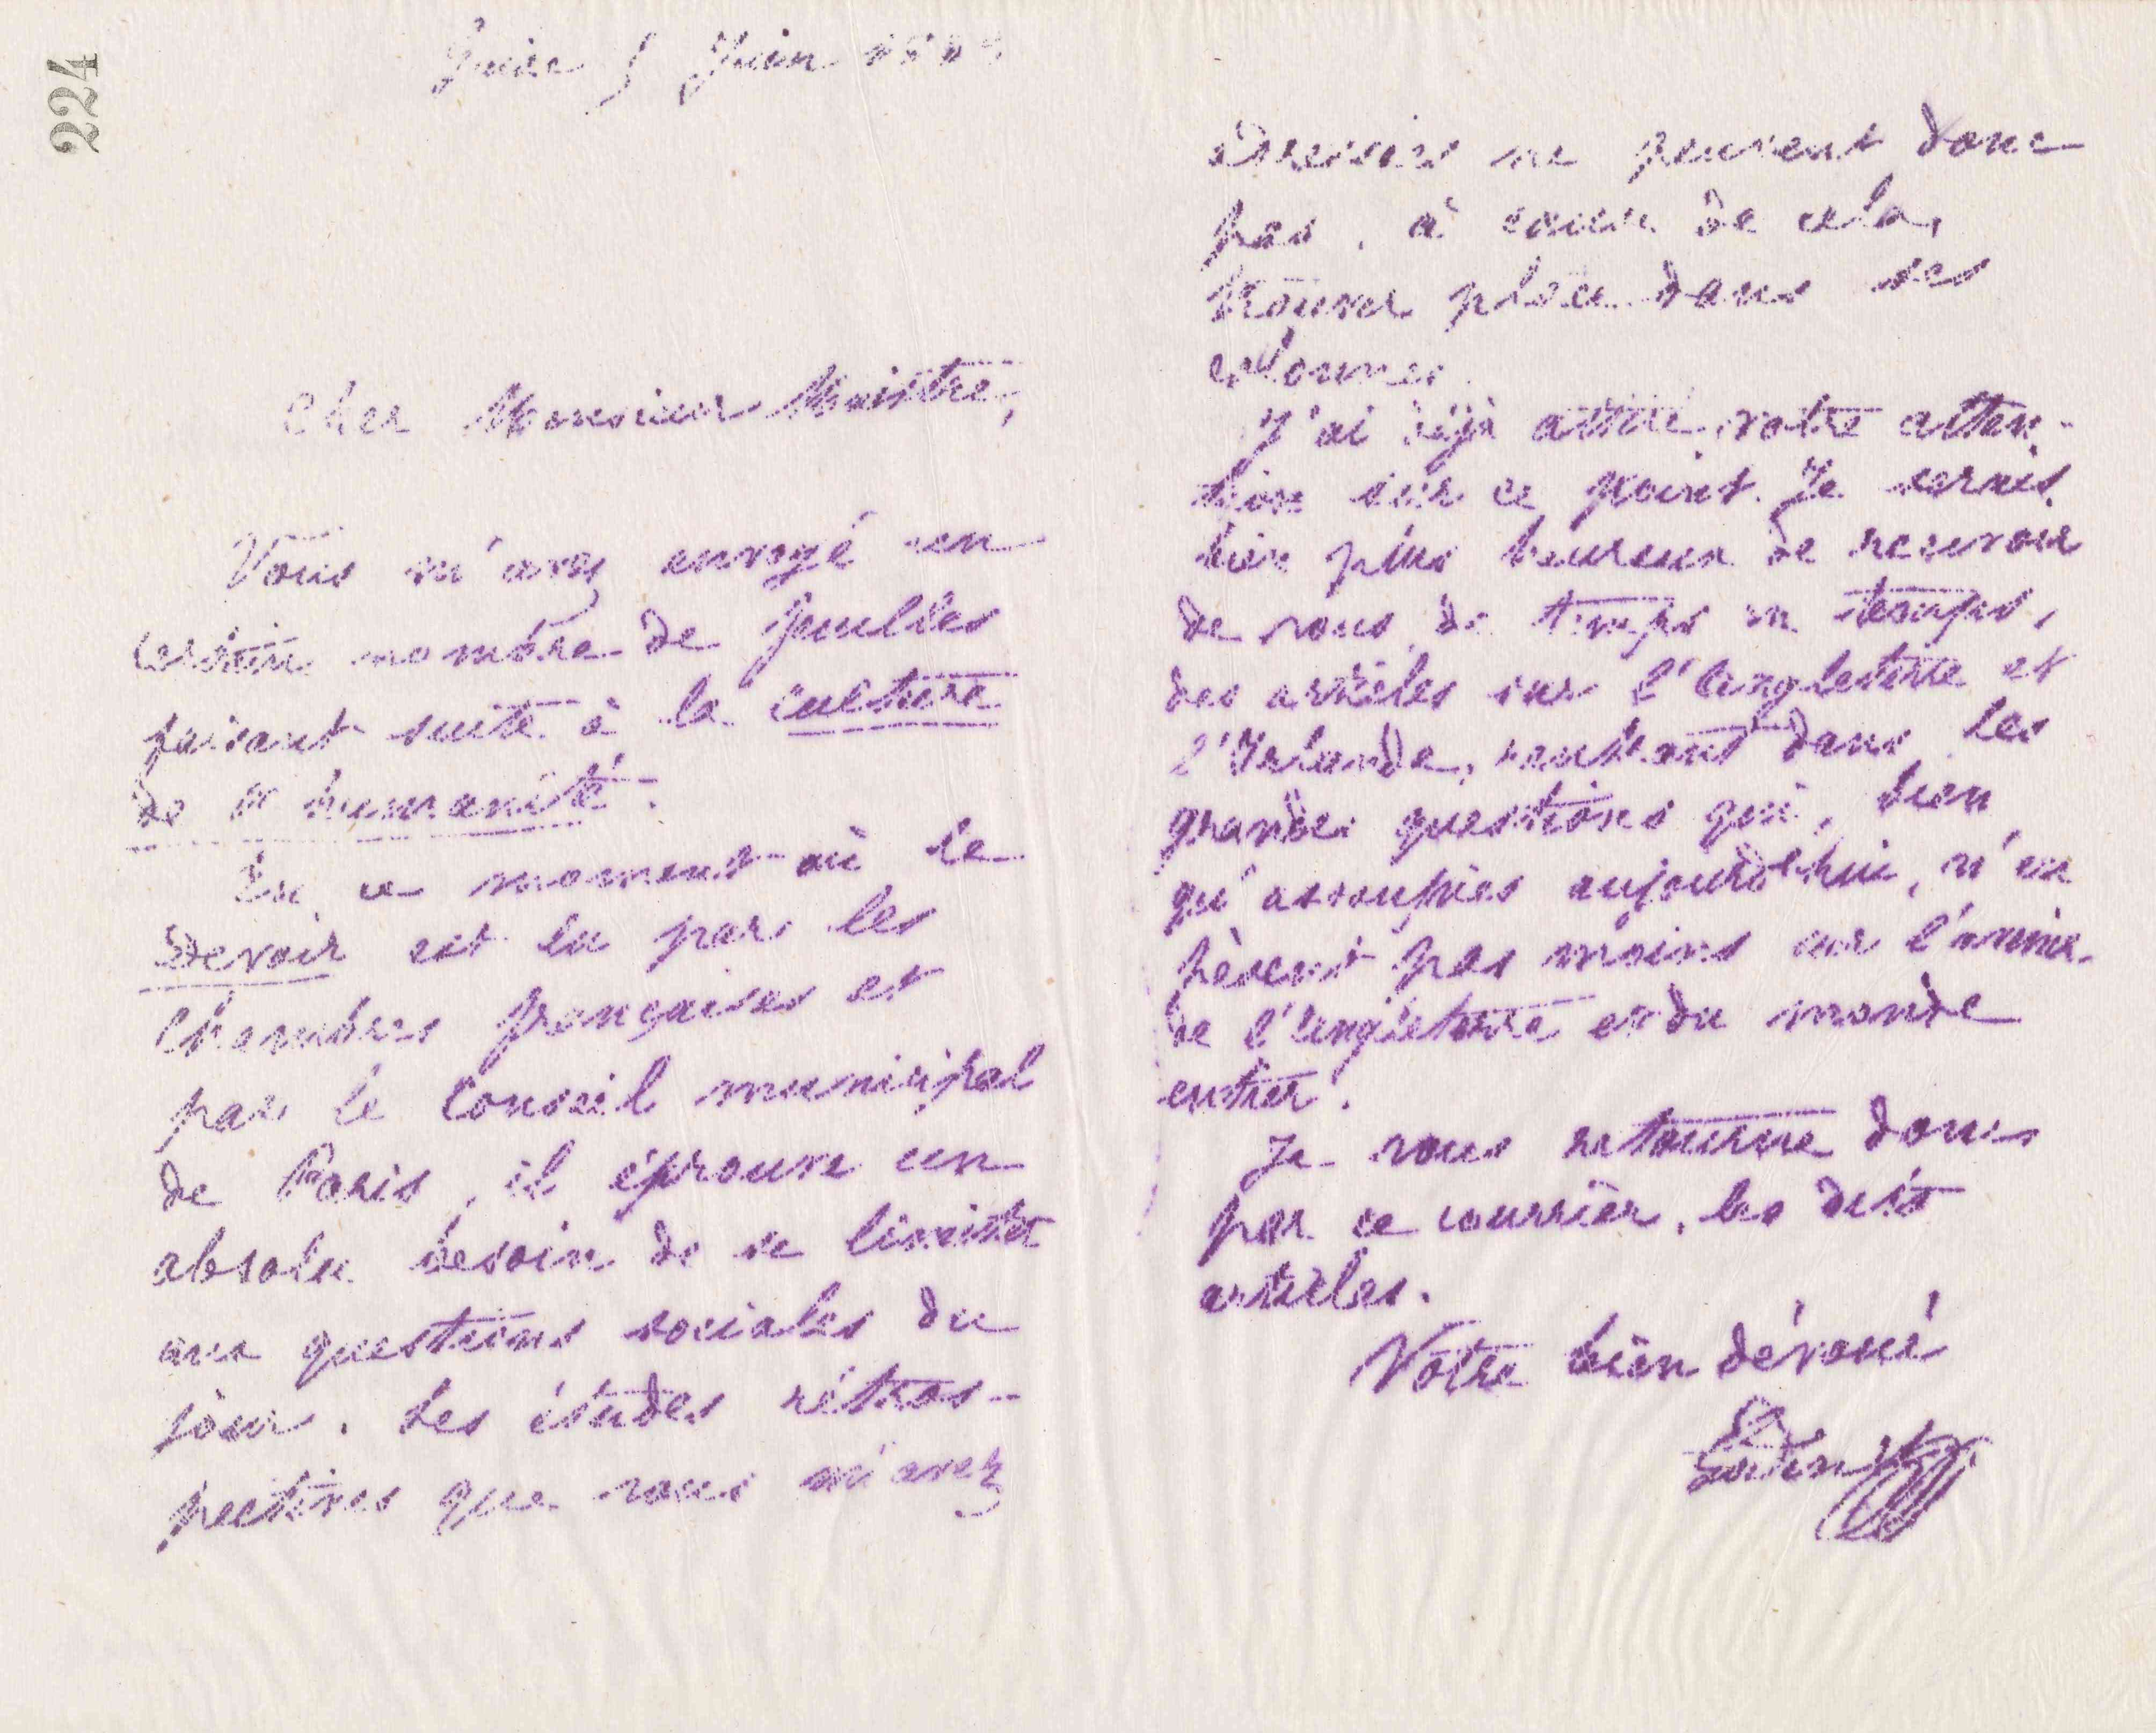 224
Guise 5 Juin
Cher Monsieur Maistre,
Vous m'avez envoyé un
certain nombre de feuilles
faisant suite à la culture
de l'humanité.
En ce moment où le
Devoir est lu par les
Chambres françaises et
par le Conseil municipal
de Paris, il éprouve un
absolu besoin de se limiter
aux questions sociales du
jour. Les études rétros-
pectives que vous m'avez
adressées ne peuvent donc
pas, à cause de cela,
trouver place dans ses
colonnes.
J'ai déjà attiré votre atten-
tion sur ce point. Je serais
bien plus heureux de recevoir
de vous, de temps en temps,
des articles sur l'Angleterre et
l'Irlande, rentrant dans les
grandes questions qui, bien
qu'assoupies aujourd'hui, n'en
pèsent pas moins sur l'avenir
de l'Angleterre et du monde
entier.
Je vous retourne donc
par ce courrier, les dits
articles.
Votre bien dévoué
Godin